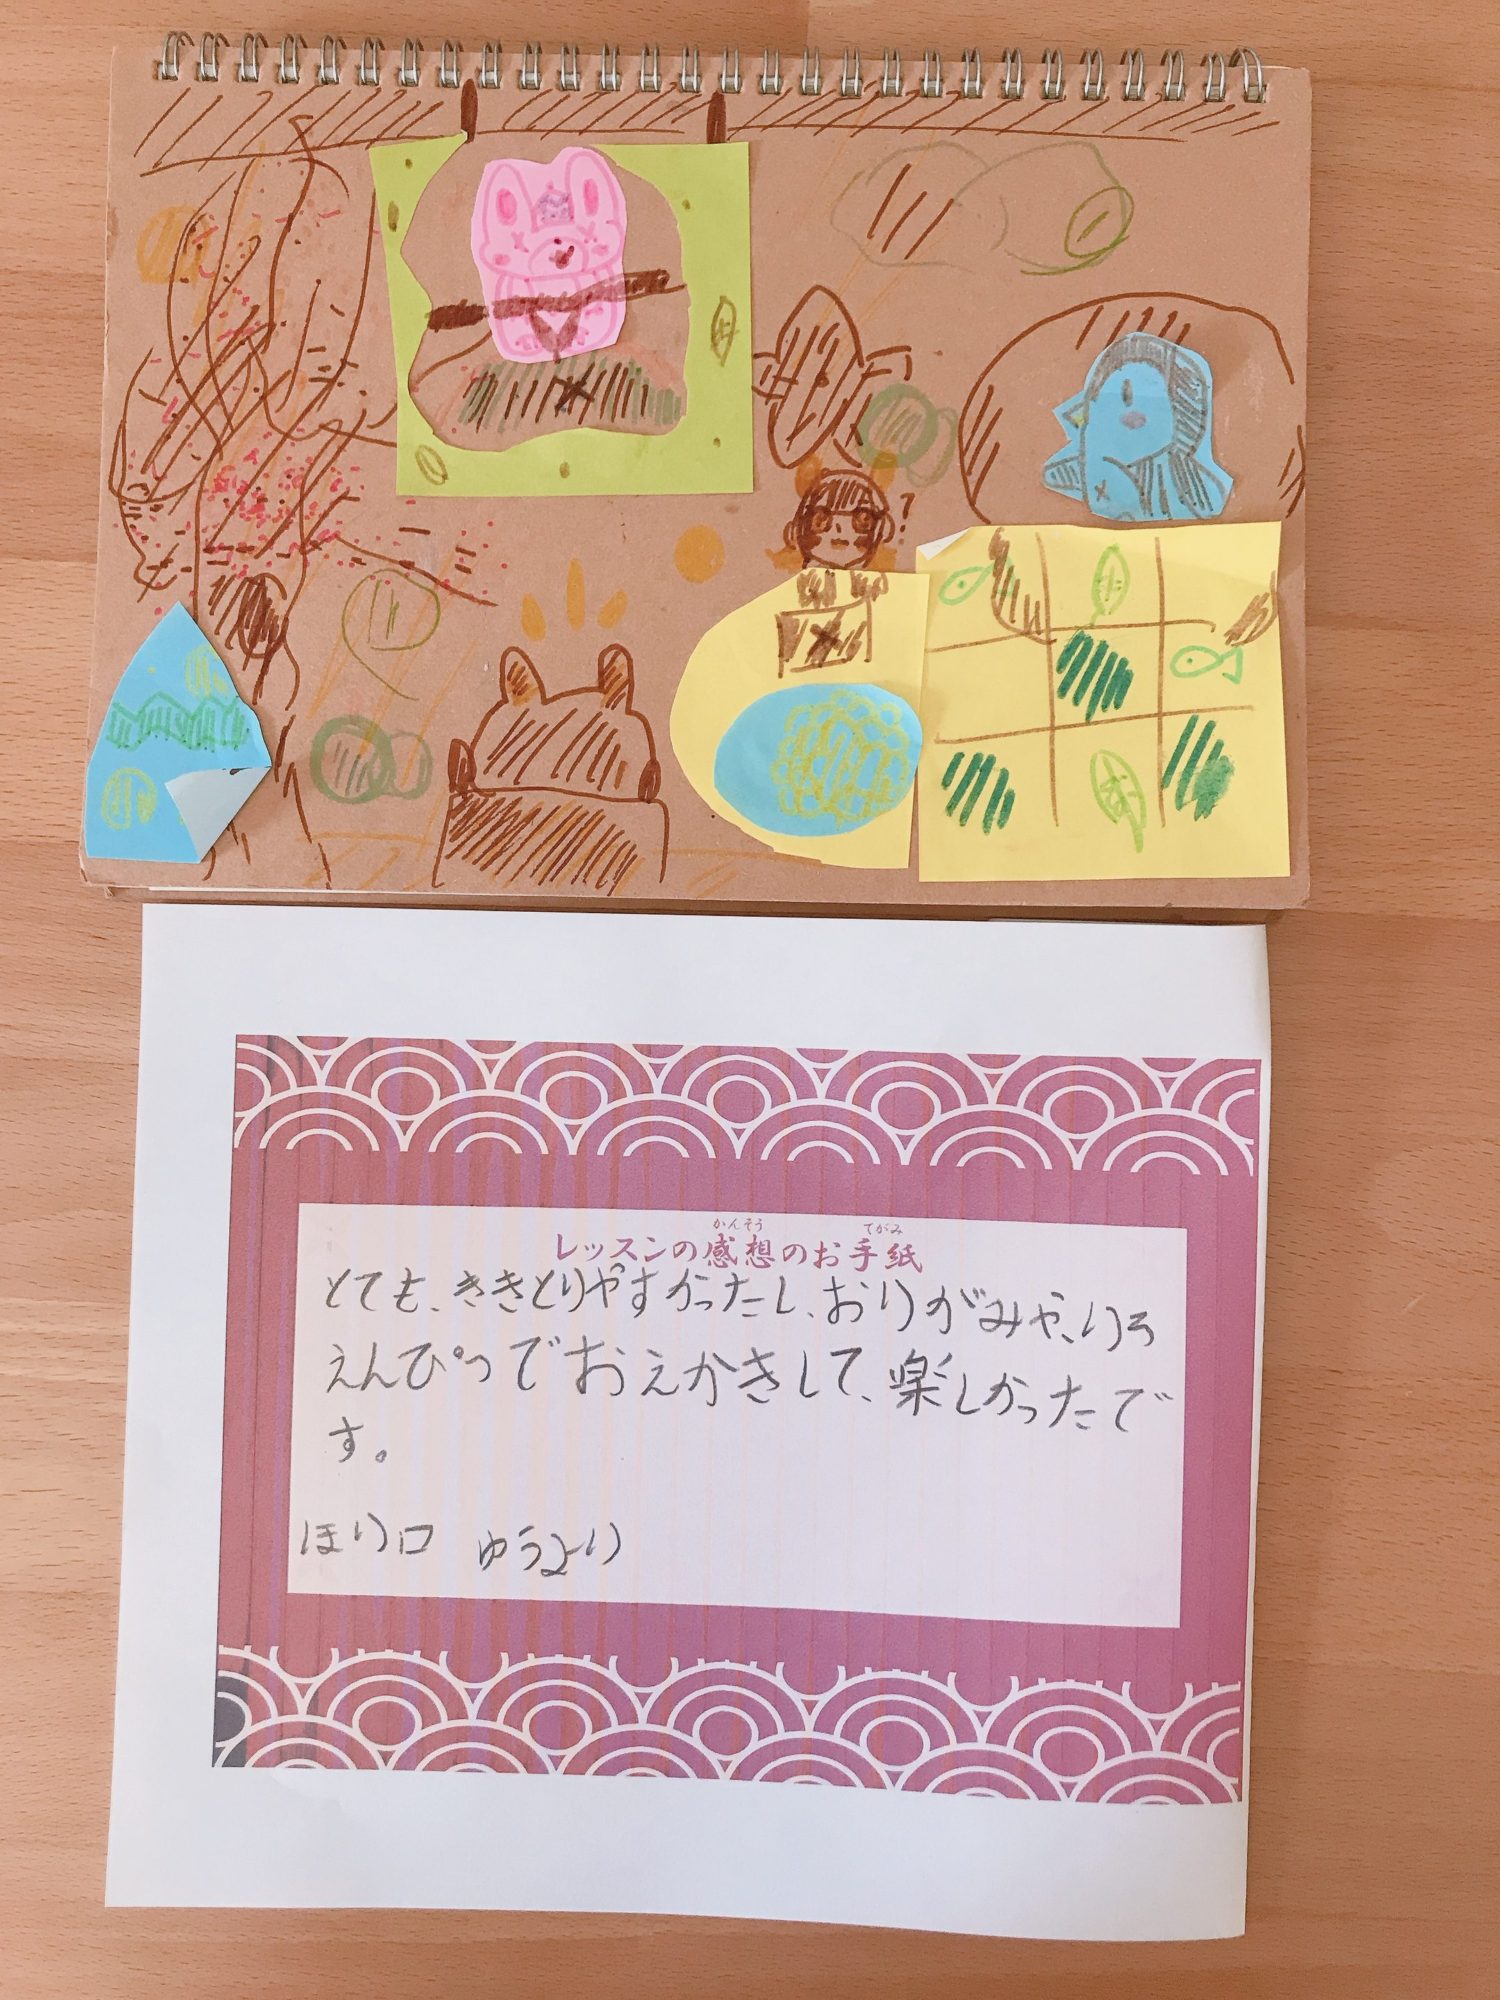 かんそう てがみ
レッスンの感想のお手紙
とても、ききとりやすかったし、おりがみや、いろ
えんぴつでおえかきして、楽しかったで
す。
ほり口 ゆうより